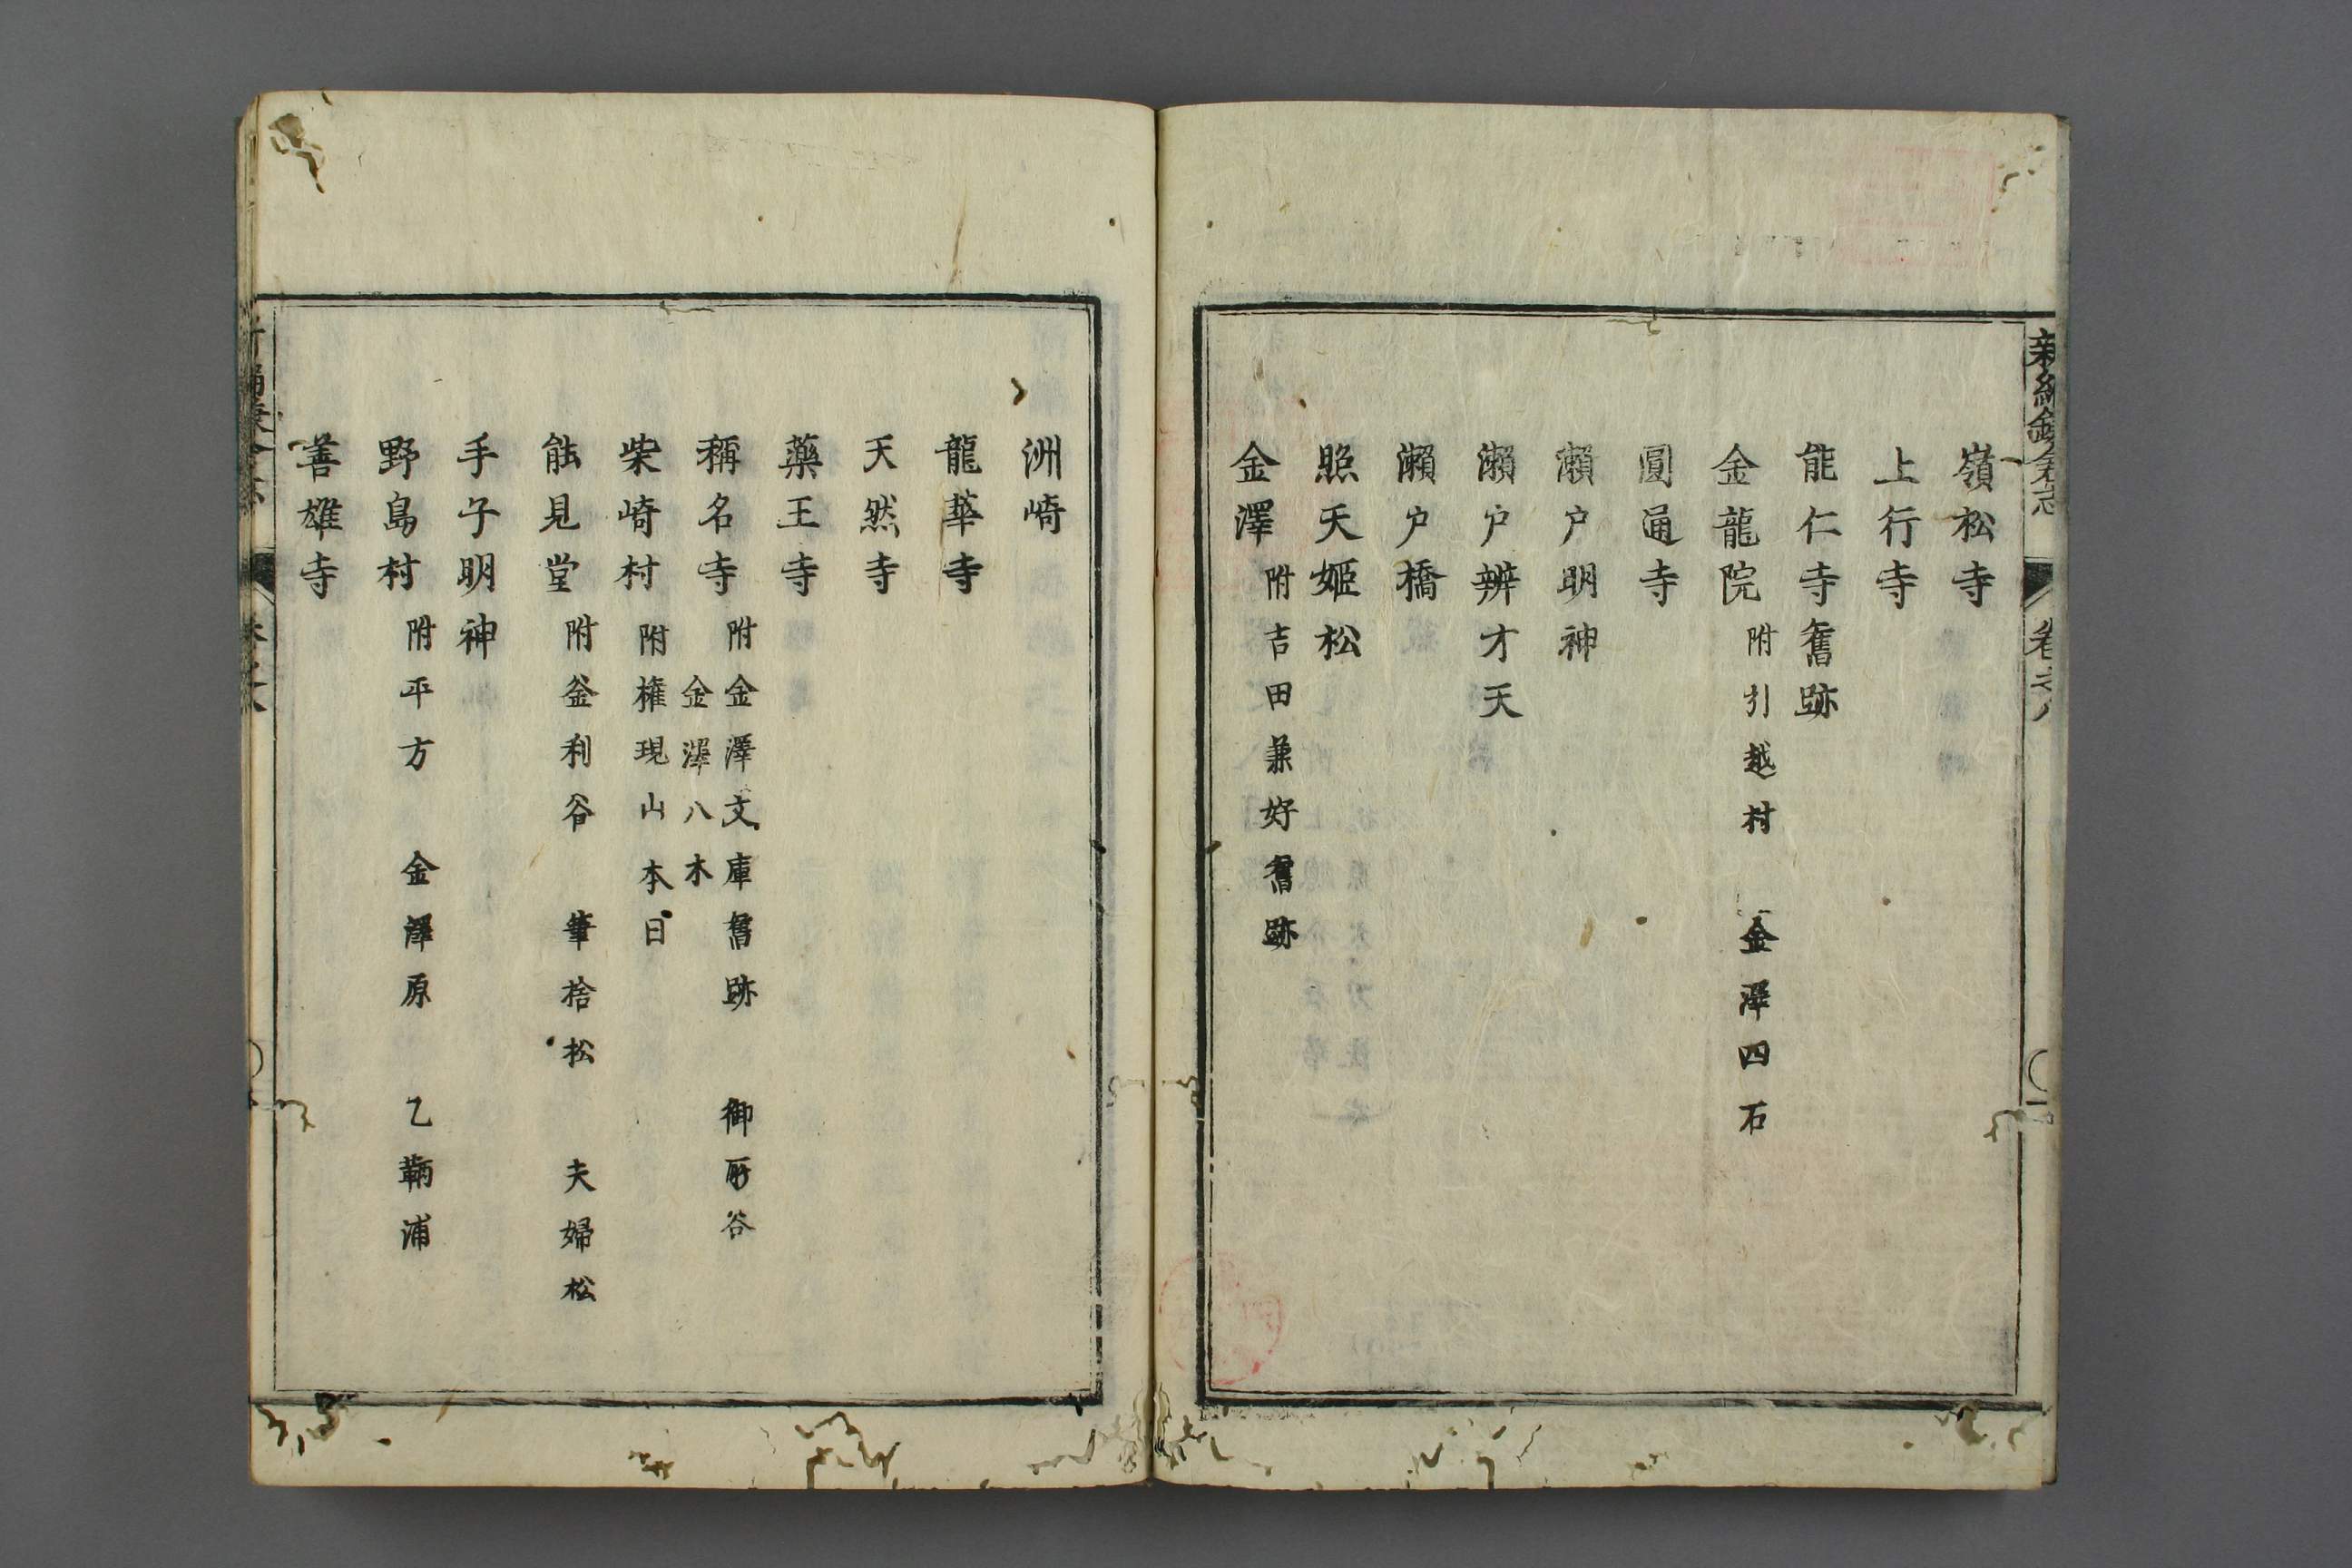 新編鎌倉志 卷之八
嶺松寺
上行寺
能仁寺舊跡
金龍院 附引越村 金澤四石
圓通寺
瀬戸明神
瀬戸辨才天
瀬戸橋
照天姬松
金澤 附吉田兼好舊跡
洲崎
龍華寺
天然寺
藥王寺
稱名寺 附金澤文庫舊跡 御所谷
金澤八木
柴崎村 附権現山 本目
能見堂 附釜利谷 筆捨松 夫婦松
手子明神
野島村 附平方 金澤原 乙鞆浦
善雄寺